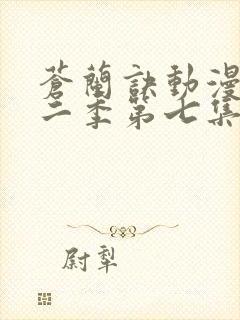 蒼蘭訣動漫
二季第七集
尉犁